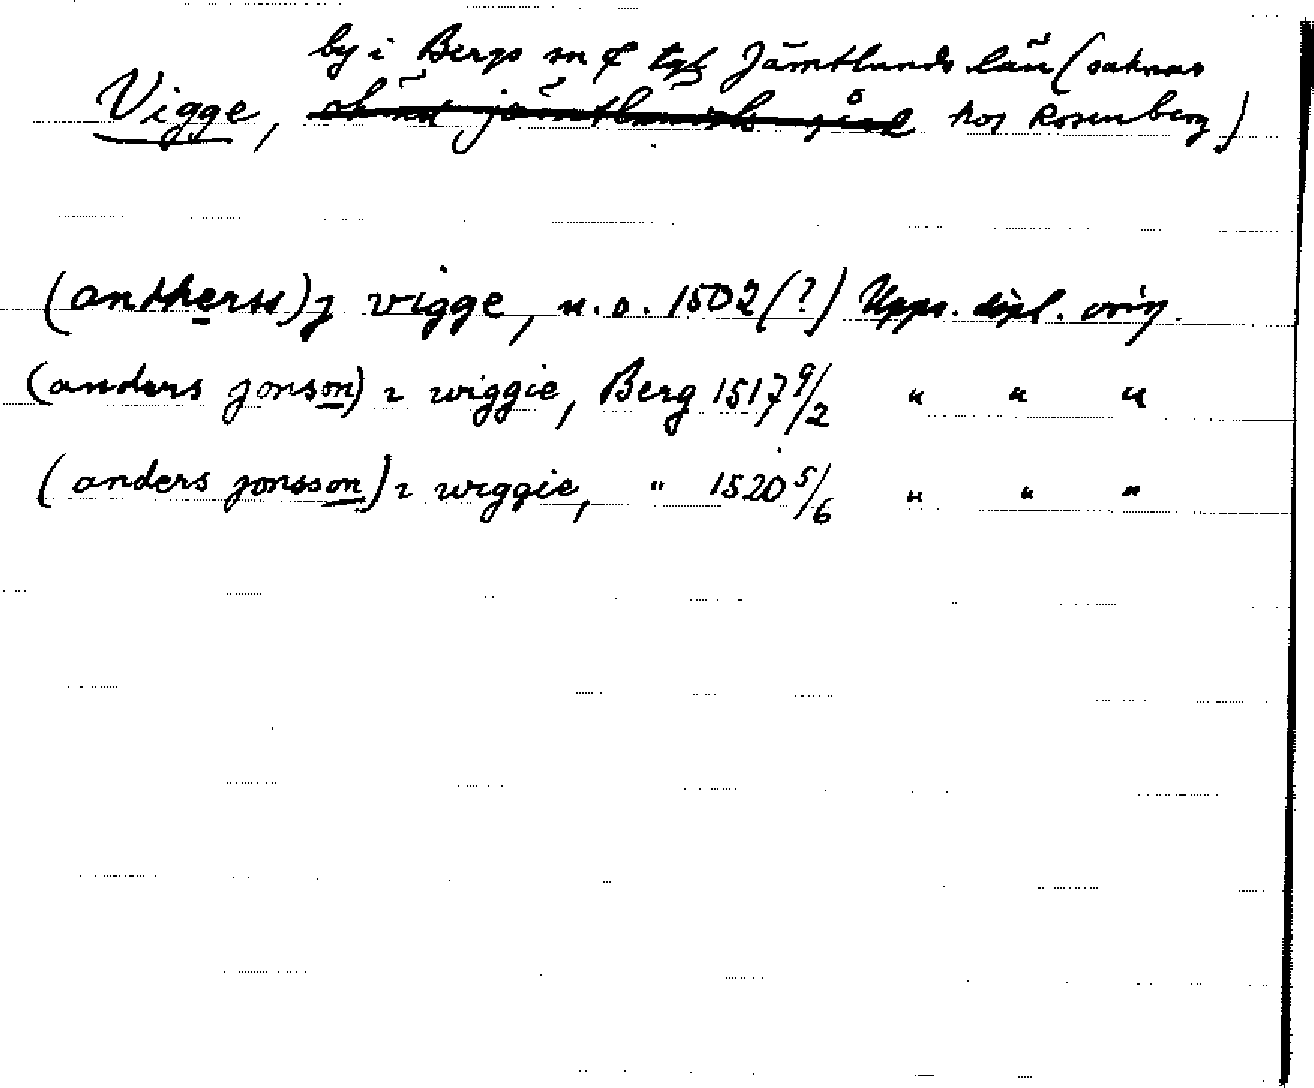 by i Bergs sn o tgl Jämtlands län (saknas
Vigge, okänd jämtländsk gård hos Rosenberg)
(antherss) j vigge, u.o. 1502 (?) Upps. dipl. orig.
(anders jonson) i wiggie, Berg 1517 9/2 " " "
(anders jonsson) i wiggie, " 1520 5/6 " " "